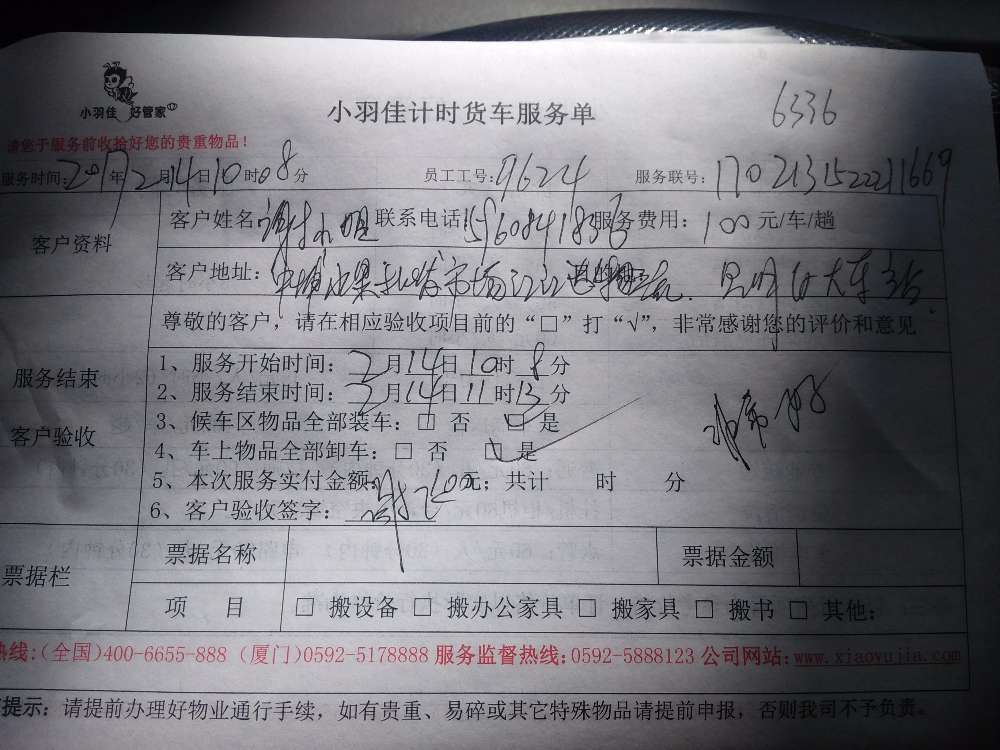 小羽佳 好管家
小羽佳计时货车服务单
6336
请您于服务前收拾好您的贵重物品！
服务时间：2017年2月14日10时08分 员工工号：9624 服务联号：17021315222211669
客户资料
客户姓名 谢小姐 联系电话 服务费用：100元/车/趟
客户地址： 水果批发市场
尊敬的客户，请在相应验收项目前的“□”打“√”，非常感谢您的评价和意见
服务结束
客户验收
1、服务开始时间：2月14日10时8分
2、服务结束时间：2月14日11时13分
3、候车区物品全部装车：□ 否 □ 是
4、车上物品全部卸车：□ 否 □ 是
非常好
5、本次服务实付金额：100元；共计 时 分
6、客户验收签字：谢
票据栏
票据名称 票据金额
项 目 □ 搬设备 □ 搬办公家具 □ 搬家具 □ 搬书 □ 其他：
热线：(全国)400-6655-888 (厦门)0592-5178888 服务监督热线：0592-5888123 公司网站：www.xiaoyujia.com
提示：请提前办理好物业通行手续，如有贵重、易碎或其它特殊物品请提前申报，否则我司不予负责。